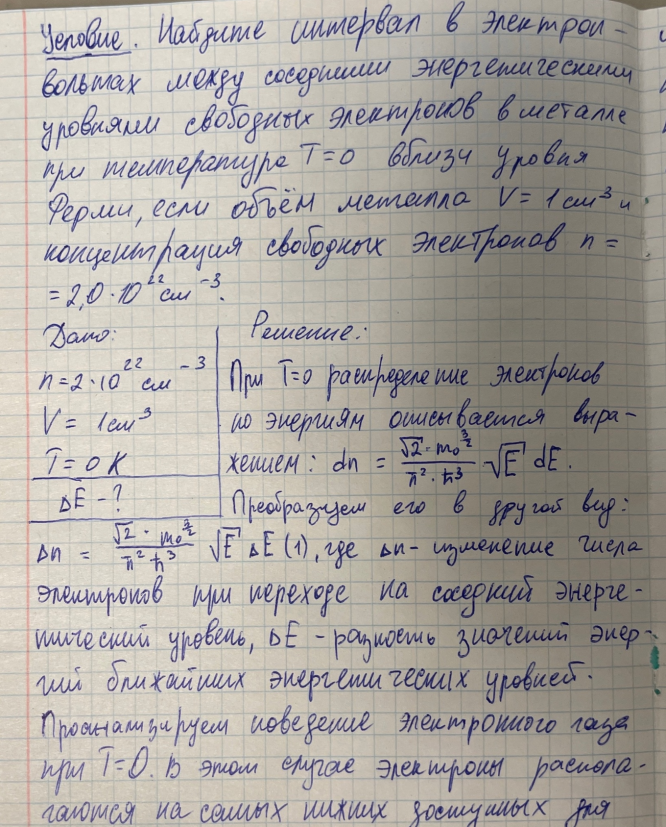 Условие. Найдите интервал в электрон-
вольтах между соседними энергетическими
уровнями свободных электронов в металле
при температура T=0 вблизи уровня
Ферми, если объём металла V = 1 см³ и
концентрация свободных электронов n =
= 2,0·10²² см⁻³.
Дано:
n=2·10²² см⁻³
V = 1см³
T = 0 К
ΔE - ?
Решение:
При T=0 распределение электронов
по энергиям описывается выра-
жением: dn = (√2·m₀^(3/2))/(π²·ħ³) √E dE.
Преобразуем его в другой вид:
Δn = (√2·m₀^(3/2))/(π²ħ³) √E ΔE (1), где Δn - изменение числа
электронов при переходе на соседний энерге-
тический уровень, ΔE - разность значений энер-
гий ближайших энергетических уровней.
Проанализируем поведение электронного газа
при T=0. В этом случае электроны распола-
гаются на самых нижних доступных для